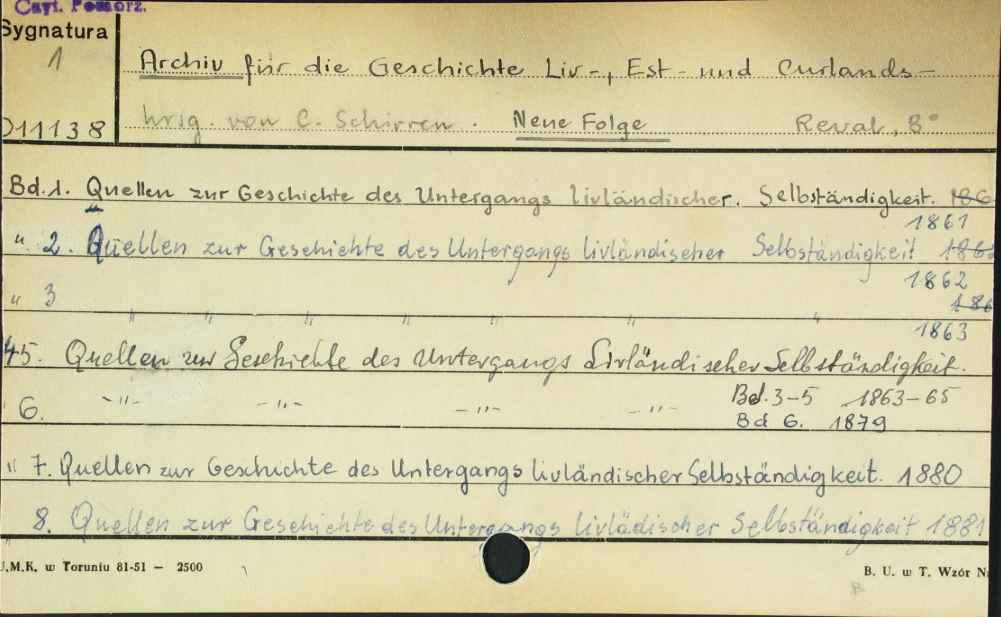 Czyt. Pomorz.
Sygnatura
1
011138
Archiv für die Geschichte Liv-, Est- und Curlands-
hrsg. von C. Schirren. Neue Folge Reval, 8°
Bd.1. Quellen zur Geschichte des Untergangs livländischer. Selbständigkeit. 186
1861
" 2. Quellen zur Geschichte des Untergangs livländischer Selbständigkeit 186
1862
" 3 186
" " " " " " "
1863
45. Quellen zur Geschichte des Untergangs Livländischer Selbständigkeit.
6. -"- -"- -"- -"- Bd.3-5 1863-65
Bd 6. 1879
" 7. Quellen zur Geschichte des Untergangs livländischer Selbständigkeit. 1880
8. Quellen zur Geschichte des Untergangs livlädischer Selbständigkeit 1881
"
U.M.K. w Toruniu 81-51 — 2500
B. U. w T. Wzór N